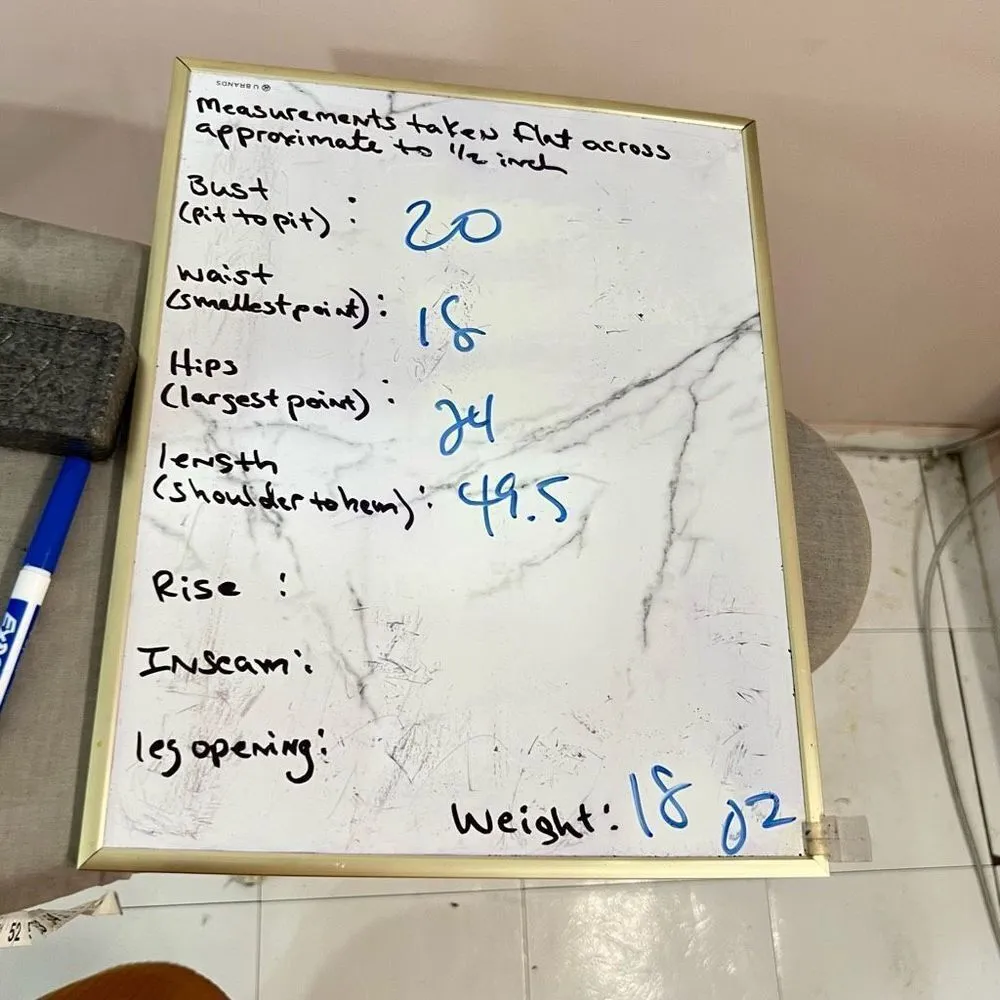 U BRANDS ®
Measurements taken flat across
approximate to 1/2 inch
Bust
(pit to pit) : 20
Waist
(smallest point) : 18
Hips
(largest point) : 24
length
(shoulder to hem) : 49.5
Rise :
Inseam :
leg opening :
Weight : 18 oz
EXPO
52